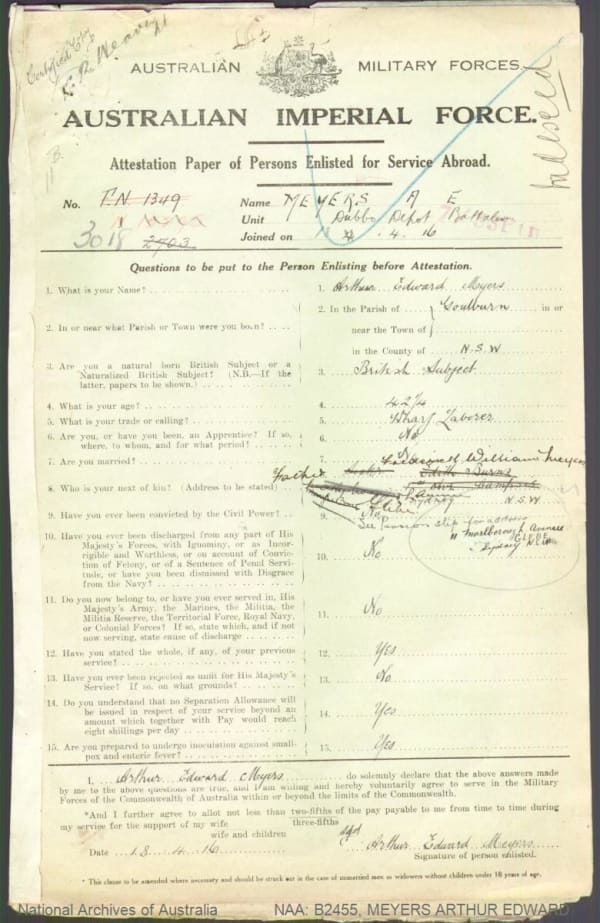 Certified Copy
AUSTRALIAN MILITARY FORCES.
AUSTRALIAN IMPERIAL FORCE.
Attestation Paper of Persons Enlisted for Service Abroad.
No. FN 1349 Name MEYERS A E
3018 2703 Unit Dubbo Depot Battalion
Joined on 4. 16
Questions to be put to the Person Enlisting before Attestation.
1. What is your Name? 1. Arthur Edward Meyers
2. In or near what Parish or Town were you born? 2. In the Parish of Goulburn in or
near the Town of
in the County of N.S.W
3. Are you a natural born British Subject or a
Naturalized British Subject? (N.B.—If the
latter, papers to be shown.) 3. British Subject
4. What is your age? 4.
5. What is your trade or calling? 5. Wharf Laborer
6. Are you, or have you been, an Apprentice? If so,
where, to whom, and for what period? 6. No
7. Are you married? 7.
William Meyers
Father
8. Who is your next of kin? (Address to be stated) 8.
Sydney N.S.W
9. Have you ever been convicted by the Civil Power? 9. No
See Pension slip for address
11 Marlborough Avenue
GLEBE
Sydney N.S.W
10. Have you ever been discharged from any part of His
Majesty's Forces, with Ignominy, or as Incor-
rigible and Worthless, or on account of Convic-
tion of Felony, or of a Sentence of Penal Servi-
tude, or have you been dismissed with Disgrace
from the Navy? 10. No
11. Do you now belong to, or have you ever served in, His
Majesty's Army, the Marines, the Militia, the
Militia Reserve, the Territorial Force, Royal Navy,
or Colonial Forces? If so, state which, and if not
now serving, state cause of discharge 11. No
12. Have you stated the whole, if any, of your previous
service? 12. Yes
13. Have you ever been rejected as unfit for His Majesty's
Service? If so, on what grounds? 13. No
14. Do you understand that no Separation Allowance will
be issued in respect of your service beyond an
amount which together with Pay would reach
eight shillings per day 14. Yes
15. Are you prepared to undergo inoculation against small-
pox and enteric fever? 15. Yes
I, Arthur Edward Meyers do solemnly declare that the above answers made
by me to the above questions are true, and I am willing and hereby voluntarily agree to serve in the Military
Forces of the Commonwealth of Australia within or beyond the limits of the Commonwealth.
*And I further agree to allot not less than two-fifths of the pay payable to me from time to time during
three-fifths
my service for the support of my wife
wife and children
Date 18 4 16 Arthur Edward Meyers
Signature of person enlisted.
* This clause to be amended where necessary and should be struck out in the case of unmarried men or widowers without children under 18 years of age.
National Archives of Australia NAA: B2455, MEYERS ARTHUR EDWARD